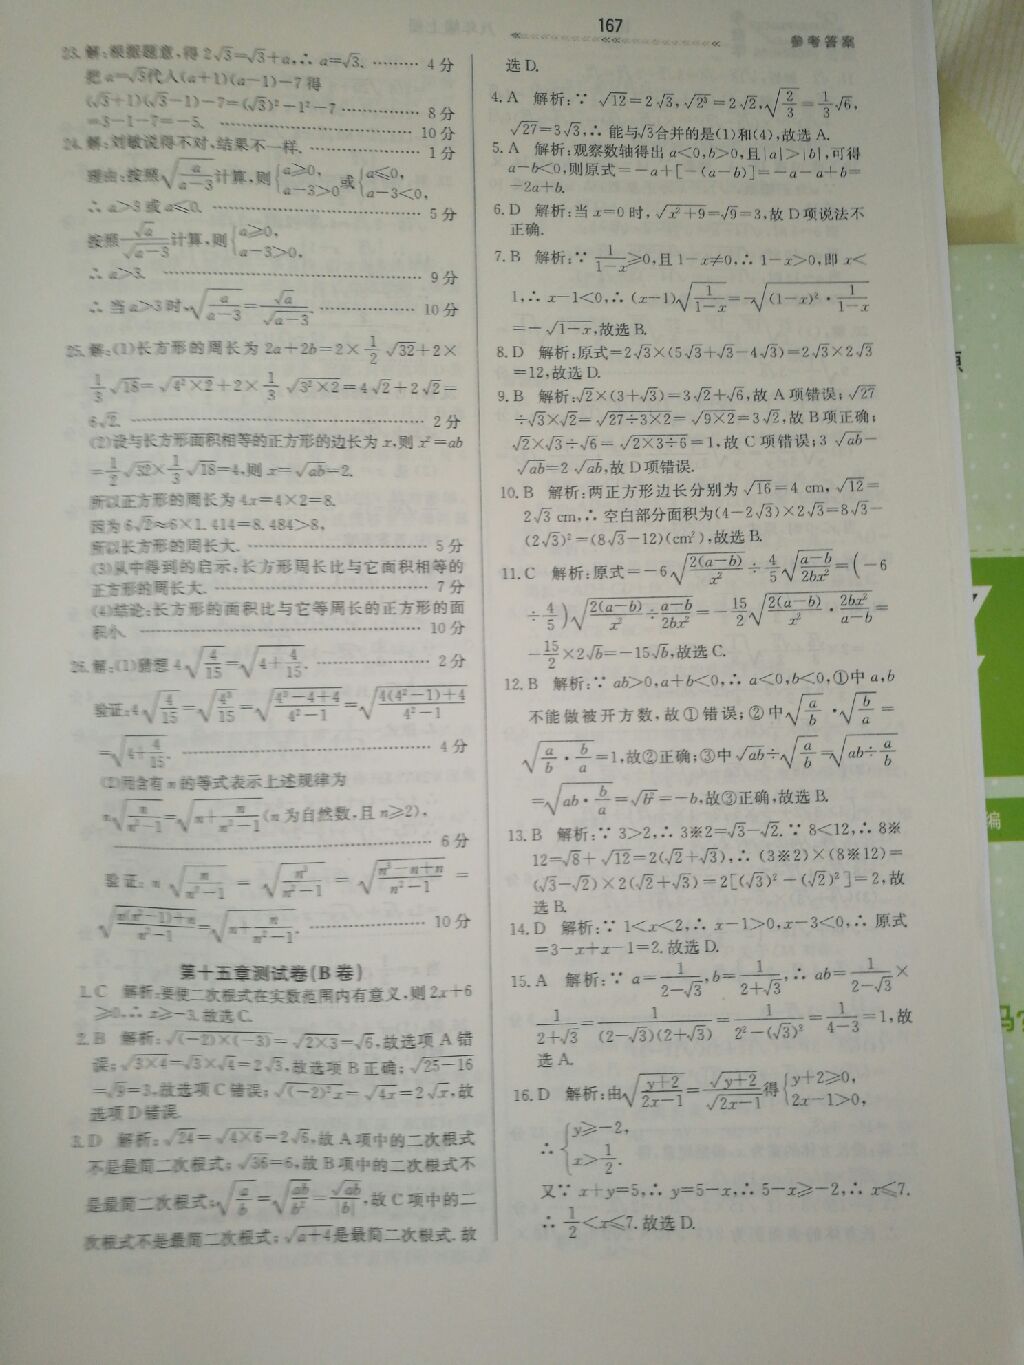 167
参考答案
23.解:根据题意,得2√3=√3+a,∴a=√3. ……… 4分
把a=√3代入(a+1)(a-1)-7得
(√3+1)(√3-1)-7=(√3)²-1²-7 ……… 8分
=3-1-7=-5. ……… 10分
24.解:刘敏说得不对,结果不一样. ……… 1分
理由:按照√(a/(a-3))计算,则{a≥0, a-3>0或{a≤0, a-3<0,
∴a>3或a≤0. ……… 5分
按照√a/√(a-3)计算,则{a≥0, a-3>0.
∴a>3. ……… 9分
∴当a>3时,√(a/(a-3))=√a/√(a-3). ……… 10分
25.解:(1)长方形的周长为2a+2b=2×1/2√32+2×
1/3√18=√(4²×2)+2×1/3√(3²×2)=4√2+2√2=
6√2. ……… 2分
(2)设与长方形面积相等的正方形的边长为x,则x²=ab
=1/2√32×1/3√18=4,则x=√ab=2.
所以正方形的周长为4x=4×2=8.
因为6√2≈6×1.414=8.484>8,
所以长方形的周长大. ……… 5分
(3)从中得到的启示:长方形周长比与它面积相等的
正方形的周长大. ……… 7分
(4)结论:长方形的面积比与它等周长的正方形的面
积小. ……… 10分
26.解:(1)猜想4√(4/15)=√(4+4/15). ……… 2分
验证:4√(4/15)=√(4³/15)=√((4³-4+4)/(4²-1))=√((4(4²-1)+4)/(4²-1))
=√(4+4/15). ……… 4分
(2)用含有n的等式表示上述规律为
n√(n/(n²-1))=√(n+n/(n²-1))(n为自然数,且n≥2),
……… 6分
验证:n√(n/(n²-1))=√(n³/(n²-1))=√((n³-n+n)/(n²-1))=
√((n(n²-1)+n)/(n²-1))=√(n+n/(n²-1)). ……… 10分
第十五章测试卷(B卷)
1.C 解析:要使二次根式在实数范围内有意义,则2x+6
≥0,∴x≥-3.故选C.
2.B 解析:√((-2)×(-3))=√(2×3)=√6,故选项A错
误;√(3×4)=√3×√4=2√3,故选项B正确;√(25-16)
=√9=3,故选项C错误;√((-2)²x)=√(4x)=2√x,故
选项D错误.
3.D 解析:√24=√(4×6)=2√6,故A项中的二次根式
不是最简二次根式;√36=6,故B项中的二次根式不
是最简二次根式;√(a/b)=√(ab/b²)=√ab/|b|,故C项中的二
次根式不是最简二次根式;√(a+4)是最简二次根式.故
选D.
4.A 解析:∵√12=2√3,√2³=2√2,√(2/3)=1/3√6,
√27=3√3,∴能与√3合并的是(1)和(4),故选A.
5.A 解析:观察数轴得出a<0,b>0,且|a|>|b|,可得
a-b<0,则原式=-a+[-(a-b)]=-a-a+b=
-2a+b.
6.D 解析:当x=0时,√(x²+9)=√9=3,故D项说法不
正确.
7.B 解析:∵1/(1-x)≥0,且1-x≠0,∴1-x>0,即x<
1,∴x-1<0,∴(x-1)√(1/(1-x))=-√((1-x)²·1/(1-x))
=-√(1-x),故选B.
8.D 解析:原式=2√3×(5√3+√3-4√3)=2√3×2√3
=12,故选D.
9.B 解析:√2×(3+√3)=3√2+√6,故A项错误;√27
÷√3×√2=√(27÷3×2)=√(9×2)=3√2,故B项正确;
√2×√3÷√6=√(2×3÷6)=1,故C项错误;3√ab-
√ab=2√ab,故D项错误.
10.B 解析:两正方形边长分别为√16=4 cm,√12=
2√3 cm,∴空白部分面积为(4-2√3)×2√3=8√3-
(2√3)²=(8√3-12)(cm²),故选B.
11.C 解析:原式=-6√(2(a-b)/x²)÷4/5√((a-b)/2bx²)=(-6
÷4/5)√(2(a-b)/x²÷(a-b)/2bx²)=-15/2√(2(a-b)/x²·2bx²/(a-b))=
-15/2×2√b=-15√b,故选C.
12.B 解析:∵ab>0,a+b<0,∴a<0,b<0,①中a,b
不能做被开方数,故①错误;②中√(a/b)·√(b/a)=
√(a/b·b/a)=1,故②正确;③中√ab÷√(a/b)=√(ab÷a/b)
=√(ab·b/a)=√b²=-b,故③正确,故选B.
13.B 解析:∵3>2,∴3※2=√3-√2.∵8<12,∴8※
12=√8+√12=2(√2+√3),∴(3※2)×(8※12)=
(√3-√2)×2(√2+√3)=2[(√3)²-(√2)²]=2,故
选B.
14.D 解析:∵1<x<2,∴x-1>0,x-3<0,∴原式
=3-x+x-1=2.故选D.
15.A 解析:∵a=1/(2-√3),b=1/(2+√3),∴ab=1/(2-√3)×
1/(2+√3)=1/((2-√3)(2+√3))=1/(2²-(√3)²)=1/(4-3)=1,故
选A.
16.D 解析:由√((y+2)/(2x-1))=√(y+2)/√(2x-1)得{y+2≥0, 2x-1>0,
∴{y≥-2, x>1/2.
又∵x+y=5,∴y=5-x,∴5-x≥-2,∴x≤7.
∴1/2<x≤7.故选D.
编